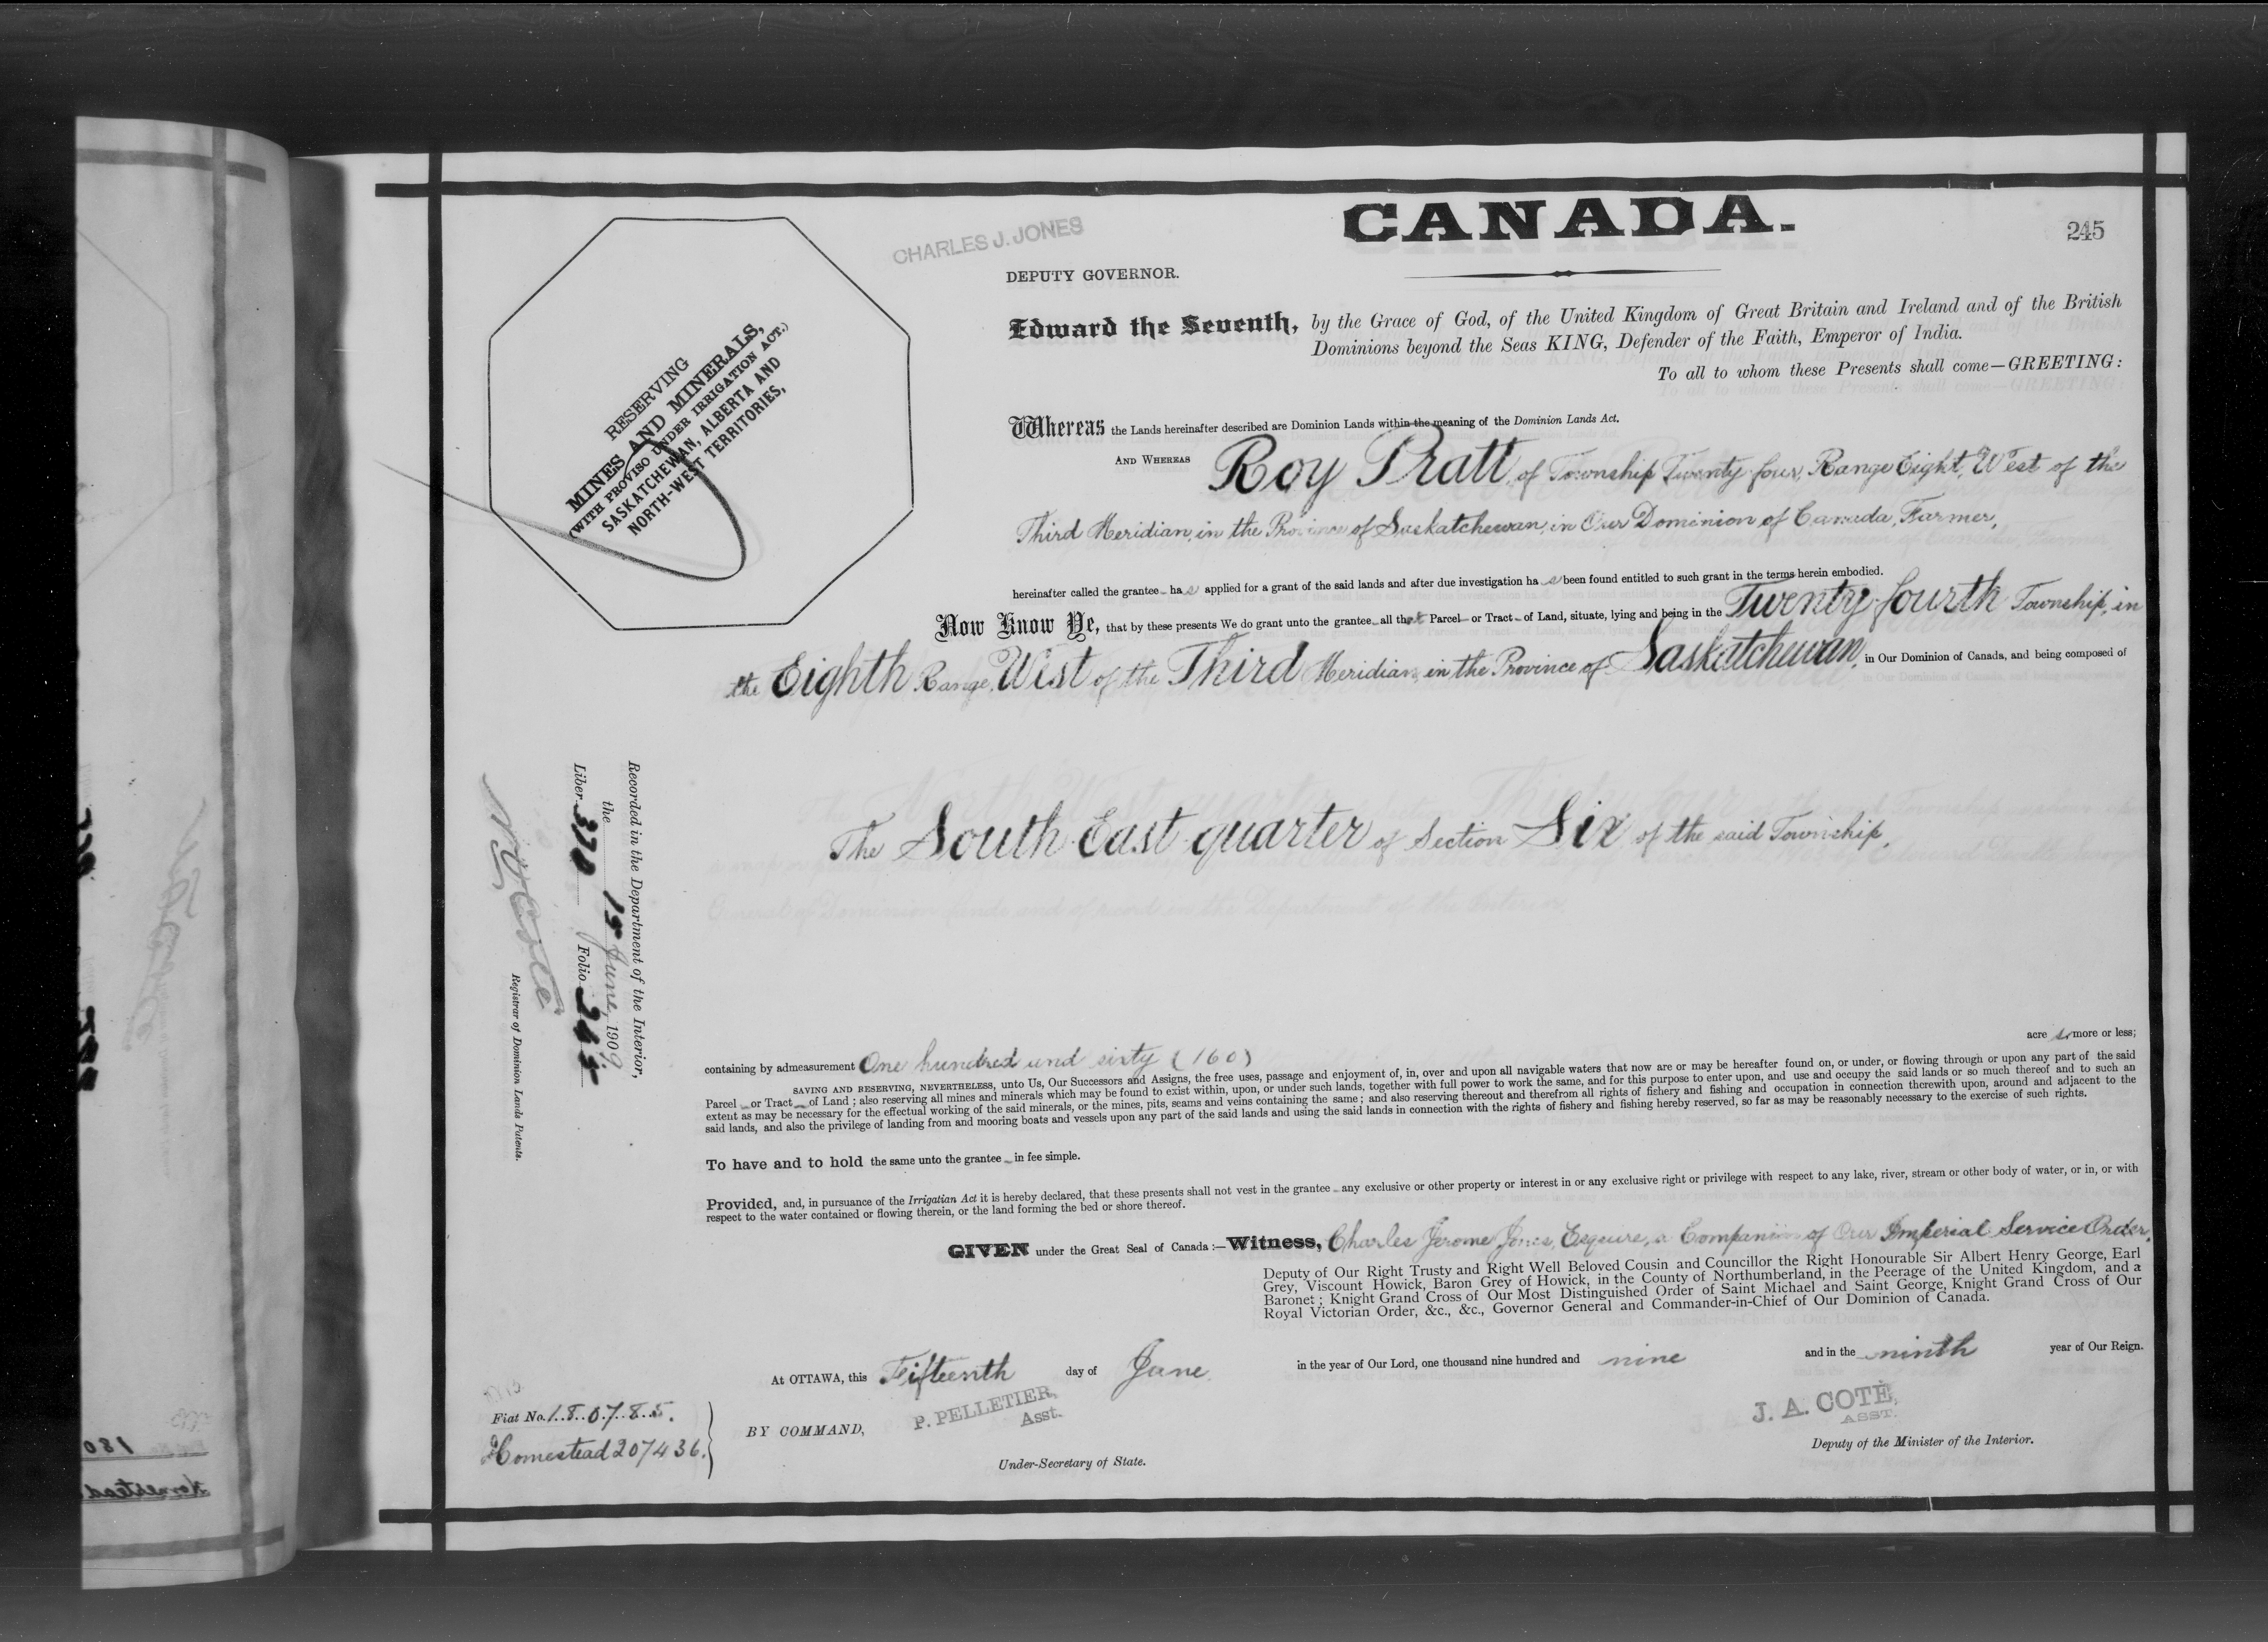 CANADA.
245
CHARLES J. JONES
DEPUTY GOVERNOR.
RESERVING
MINES AND MINERALS,
(WITH PROVISO UNDER IRRIGATION ACT.)
SASKATCHEWAN, ALBERTA AND
NORTH-WEST TERRITORIES,
Edward the Seventh, by the Grace of God, of the United Kingdom of Great Britain and Ireland and of the British
Dominions beyond the Seas KING, Defender of the Faith, Emperor of India.
To all to whom these Presents shall come—GREETING:
Whereas the Lands hereinafter described are Dominion Lands within the meaning of the Dominion Lands Act.
AND WHEREAS Roy Pratt, of Township Twenty-four, Range Eight, West of the
Third Meridian, in the Province of Saskatchewan, in Our Dominion of Canada, Farmer,
hereinafter called the grantee has applied for a grant of the said lands and after due investigation has been found entitled to such grant in the terms herein embodied.
Now Know Ye, that by these presents We do grant unto the grantee all that Parcel or Tract of Land, situate, lying and being in the Twenty-fourth Township, in
the Eighth Range, West of the Third Meridian, in the Province of Saskatchewan, in Our Dominion of Canada, and being composed of
The South East quarter of Section Six of the said Township,
acres more or less;
containing by admeasurement One hundred and sixty (160)
SAVING AND RESERVING, NEVERTHELESS, unto Us, Our Successors and Assigns, the free uses, passage and enjoyment of, in, over and upon all navigable waters that now are or may be hereafter found on, or under, or flowing through or upon any part of the said
Parcel or Tract of Land; also reserving all mines and minerals which may be found to exist within, upon, or under such lands, together with full power to work the same, and for this purpose to enter upon, and use and occupy the said lands or so much thereof and to such an
extent as may be necessary for the effectual working of the said minerals, or the mines, pits, seams and veins containing the same; and also reserving thereout and therefrom all rights of fishery and fishing and occupation in connection therewith upon, around and adjacent to the
said lands, and also the privilege of landing from and mooring boats and vessels upon any part of the said lands and using the said lands in connection with the rights of fishery and fishing hereby reserved, so far as may be reasonably necessary to the exercise of such rights.
To have and to hold the same unto the grantee in fee simple.
Provided, and, in pursuance of the Irrigatian Act it is hereby declared, that these presents shall not vest in the grantee any exclusive or other property or interest in or any exclusive right or privilege with respect to any lake, river, stream or other body of water, or in, or with
respect to the water contained or flowing therein, or the land forming the bed or shore thereof.
GIVEN under the Great Seal of Canada:—Witness, Charles Jerome Jones, Esquire, a Companion of Our Imperial Service Order,
Deputy of Our Right Trusty and Right Well Beloved Cousin and Councillor the Right Honourable Sir Albert Henry George, Earl
Grey, Viscount Howick, Baron Grey of Howick, in the County of Northumberland, in the Peerage of the United Kingdom, and a
Baronet; Knight Grand Cross of Our Most Distinguished Order of Saint Michael and Saint George, Knight Grand Cross of Our
Royal Victorian Order, &c., &c., Governor General and Commander-in-Chief of Our Dominion of Canada.
At OTTAWA, this Fifteenth day of June in the year of Our Lord, one thousand nine hundred and nine and in the ninth year of Our Reign.
BY COMMAND,
P. PELLETIER,
Asst.
Under-Secretary of State.
J. A. COTÉ,
ASST.
Deputy of the Minister of the Interior.
Fiat No. 180785.
Homestead 207436.
Recorded in the Department of the Interior,
the 15 June, 1909
Liber 370 Folio 245
Registrar of Dominion Lands Patents.
180
Homestead